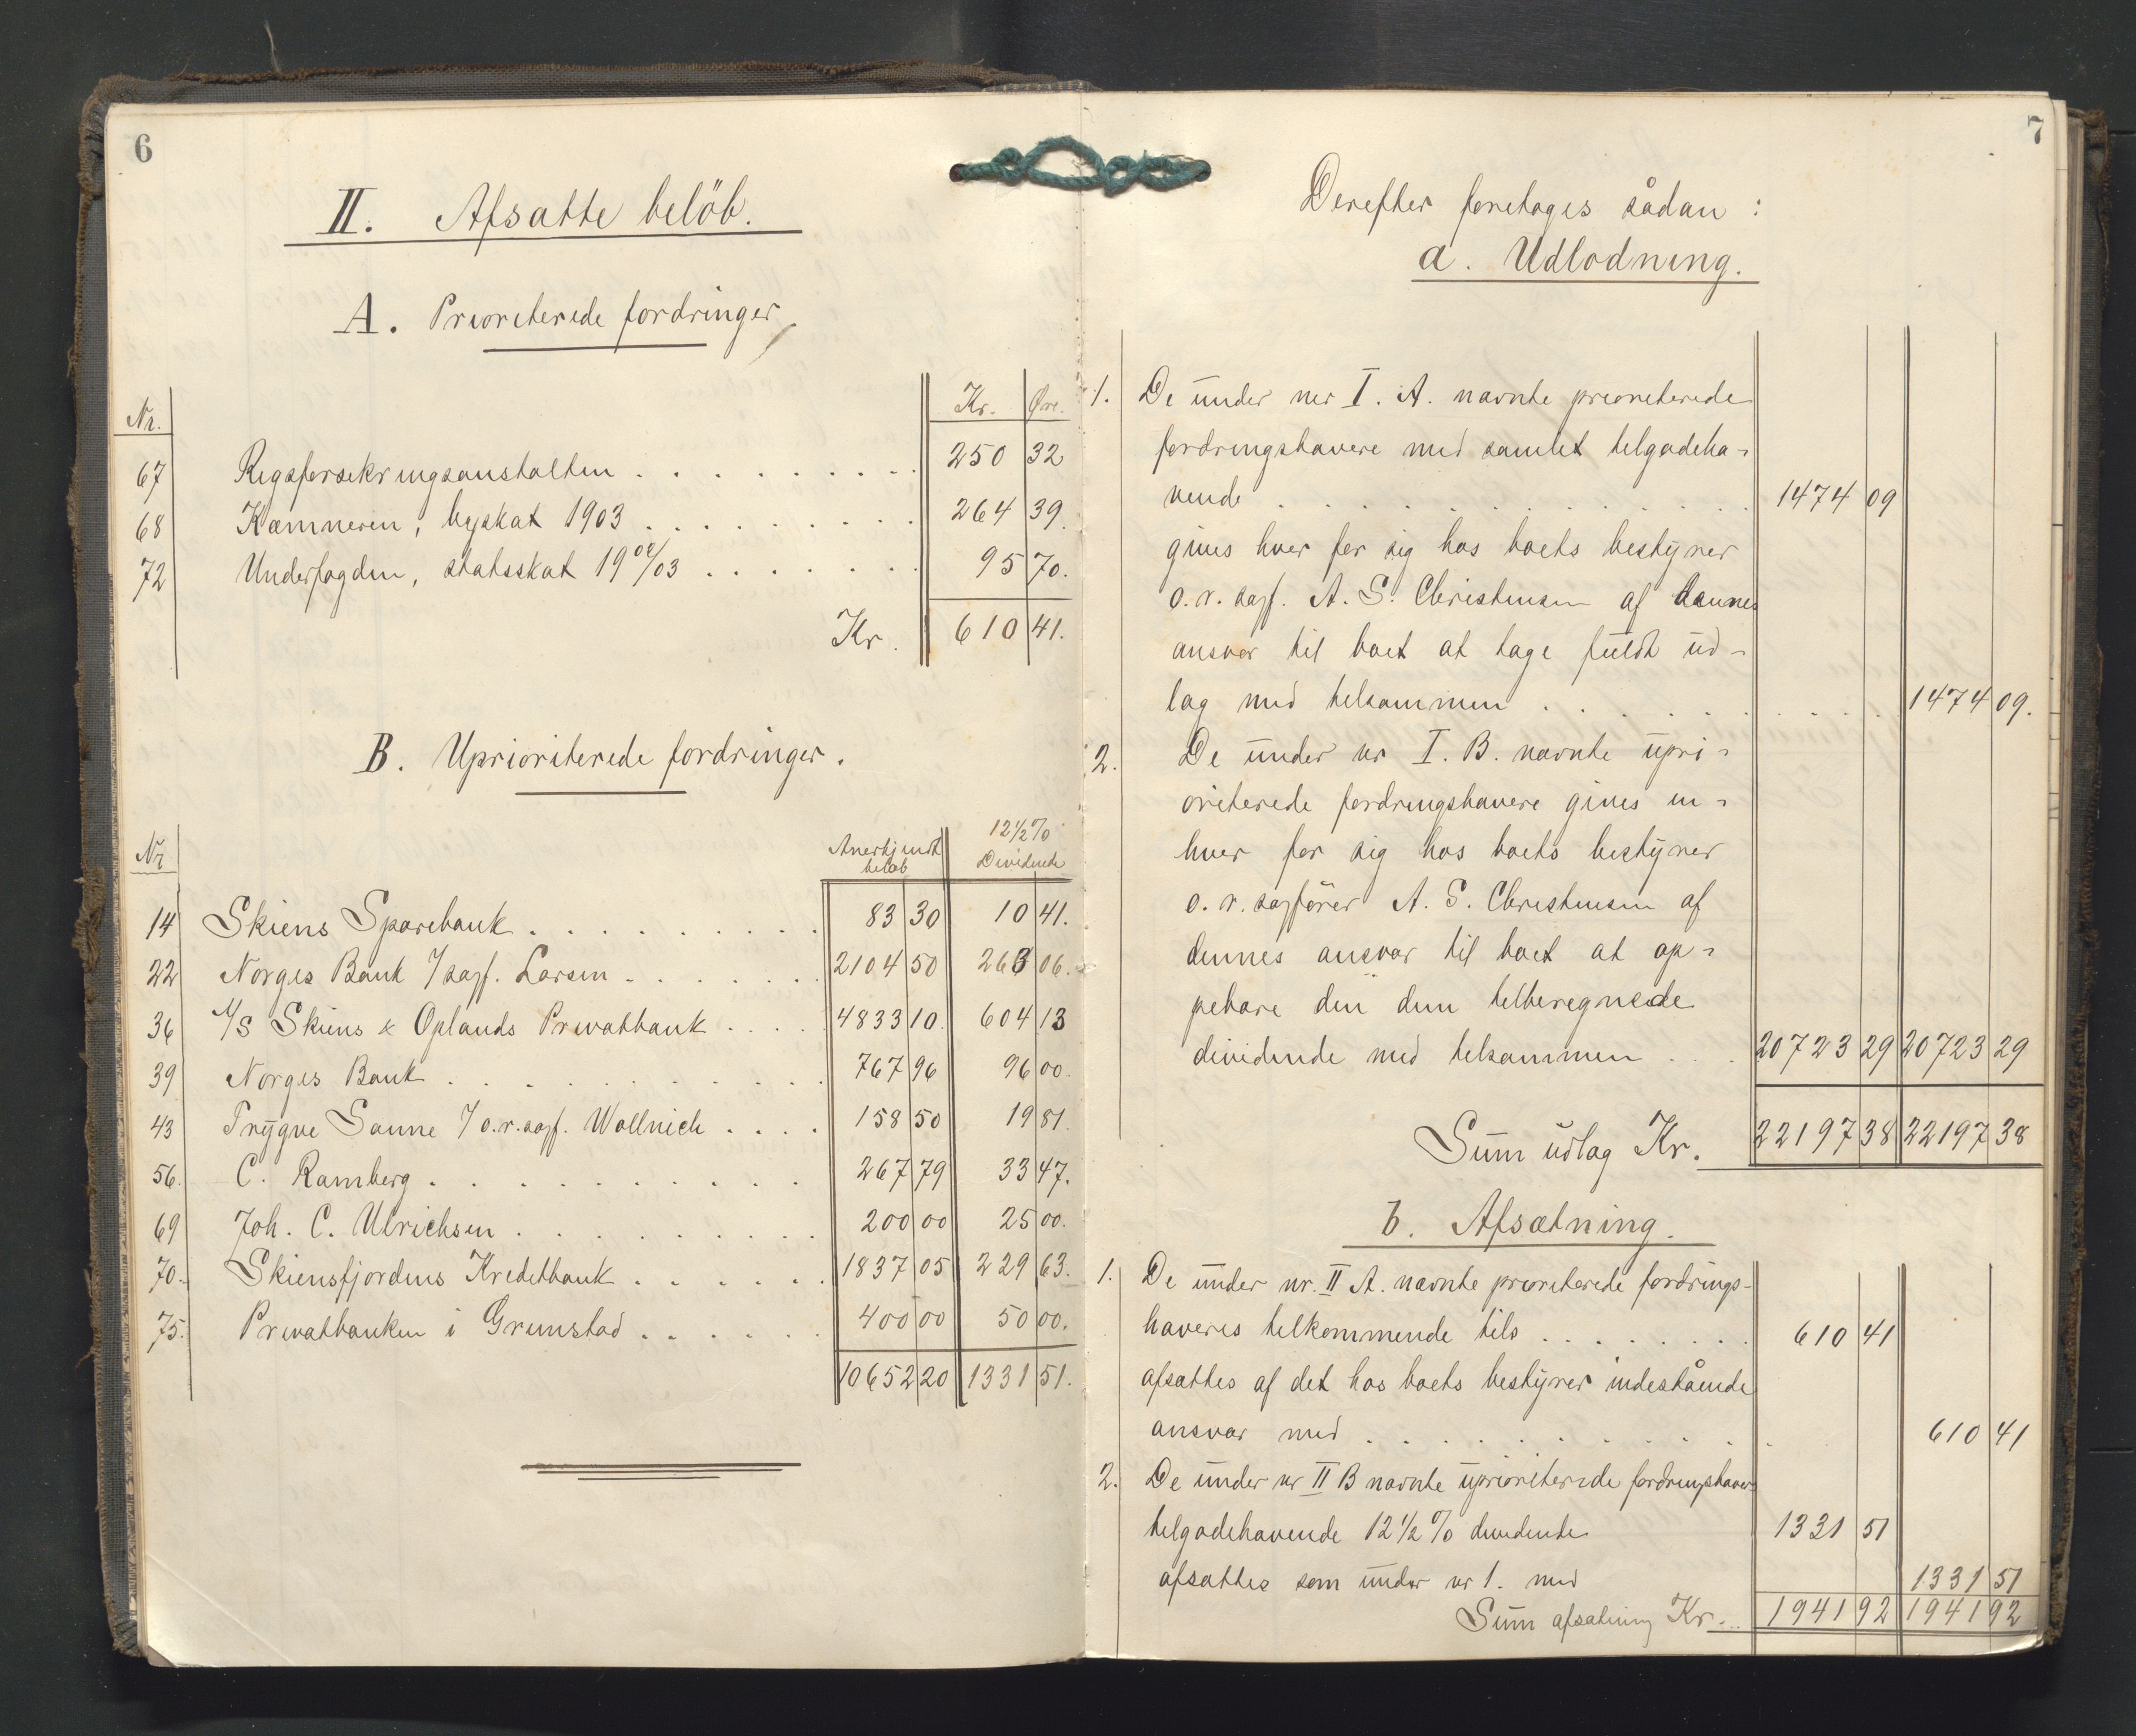 6
II. Afsatte belöb.
A. Prioriterede fordringer
Nr. Kr. Øre.
67 Rigsforsikringsanstalten . . . . . . . . . 250 32
68 Kæmneren, byskat 1903 . . . . . . . . . 264 39.
72 Underfogden, statsskat 1902/03 . . . . . . . 95 70.
Kr. 610 41.
B. Uprioriterede fordringer.
Nr Anerkjendt beløb 12½% Dividende
14 Skiens Sparebank . . . . . . . . . 83 30 10 41.
22 Norges Bank %sagf. Larsen . . . . . . 2104 50 263 06.
36 A/S Skiens & Oplands Privatbank . . . . 4833 10. 604 13
39 Norges Bank . . . . . . . . . . . 767 96 96 00.
43 Trÿgve Sanne % o.r.sagf. Wollnick . . . . 158 50 19 81.
56. C. Ramberg . . . . . . . . . . 267 79 33 47.
69 Joh. C. Ulrichsen . . . . . . . . . 200 00 25 00.
70. Skiensfjordens Kreditbank . . . . . . 1837 05 229 63.
75. Privatbanken i Grimstad . . . . . . 400 00 50 00.
10652 20 1331 51.
7
Derefter foretages sådan :
a. Udlodning.
1. De under ner I. A. nævnte prioriterede
fordringshavere med samlet tilgodeha-
vende . . . . . . . . . . . . . . 1474 09
gives hver for sig hos boets bestÿrer
o.r. sagf. A. S. Christensen af dennes
ansvar til boet at tage fuldt ud-
lag med tilsammen . . . . . . . . . . 1474 09.
2. De under nr I. B. nævnte upri-
oriterede fordringshavere gives en-
hver for sig hos boets bestÿrer
o. r. sagfører A. S. Christensen af
dennes ansvar til boet at op-
pebære den dem tilberegnede
dividende med tilsammen . . . 20723 29 20723 29
Sum udlag Kr. 22197 38 22197 38
b. Afsætning.
1. De under nr. II A. nævnte prioriterede fordrings-
haveres tilkommende tils . . . . . . . . 610 41
afsættes af det hos boets bestÿrer indestående
ansvar med . . . . . . . . . . . 610 41
2. De under nr II B nævnte uprioriterede fordringshaver
tilgodehavende 12½% dividende 1331 51
afsættes som under nr 1. med 1331 51
Sum afsætning Kr. . . 1941 92 1941 92